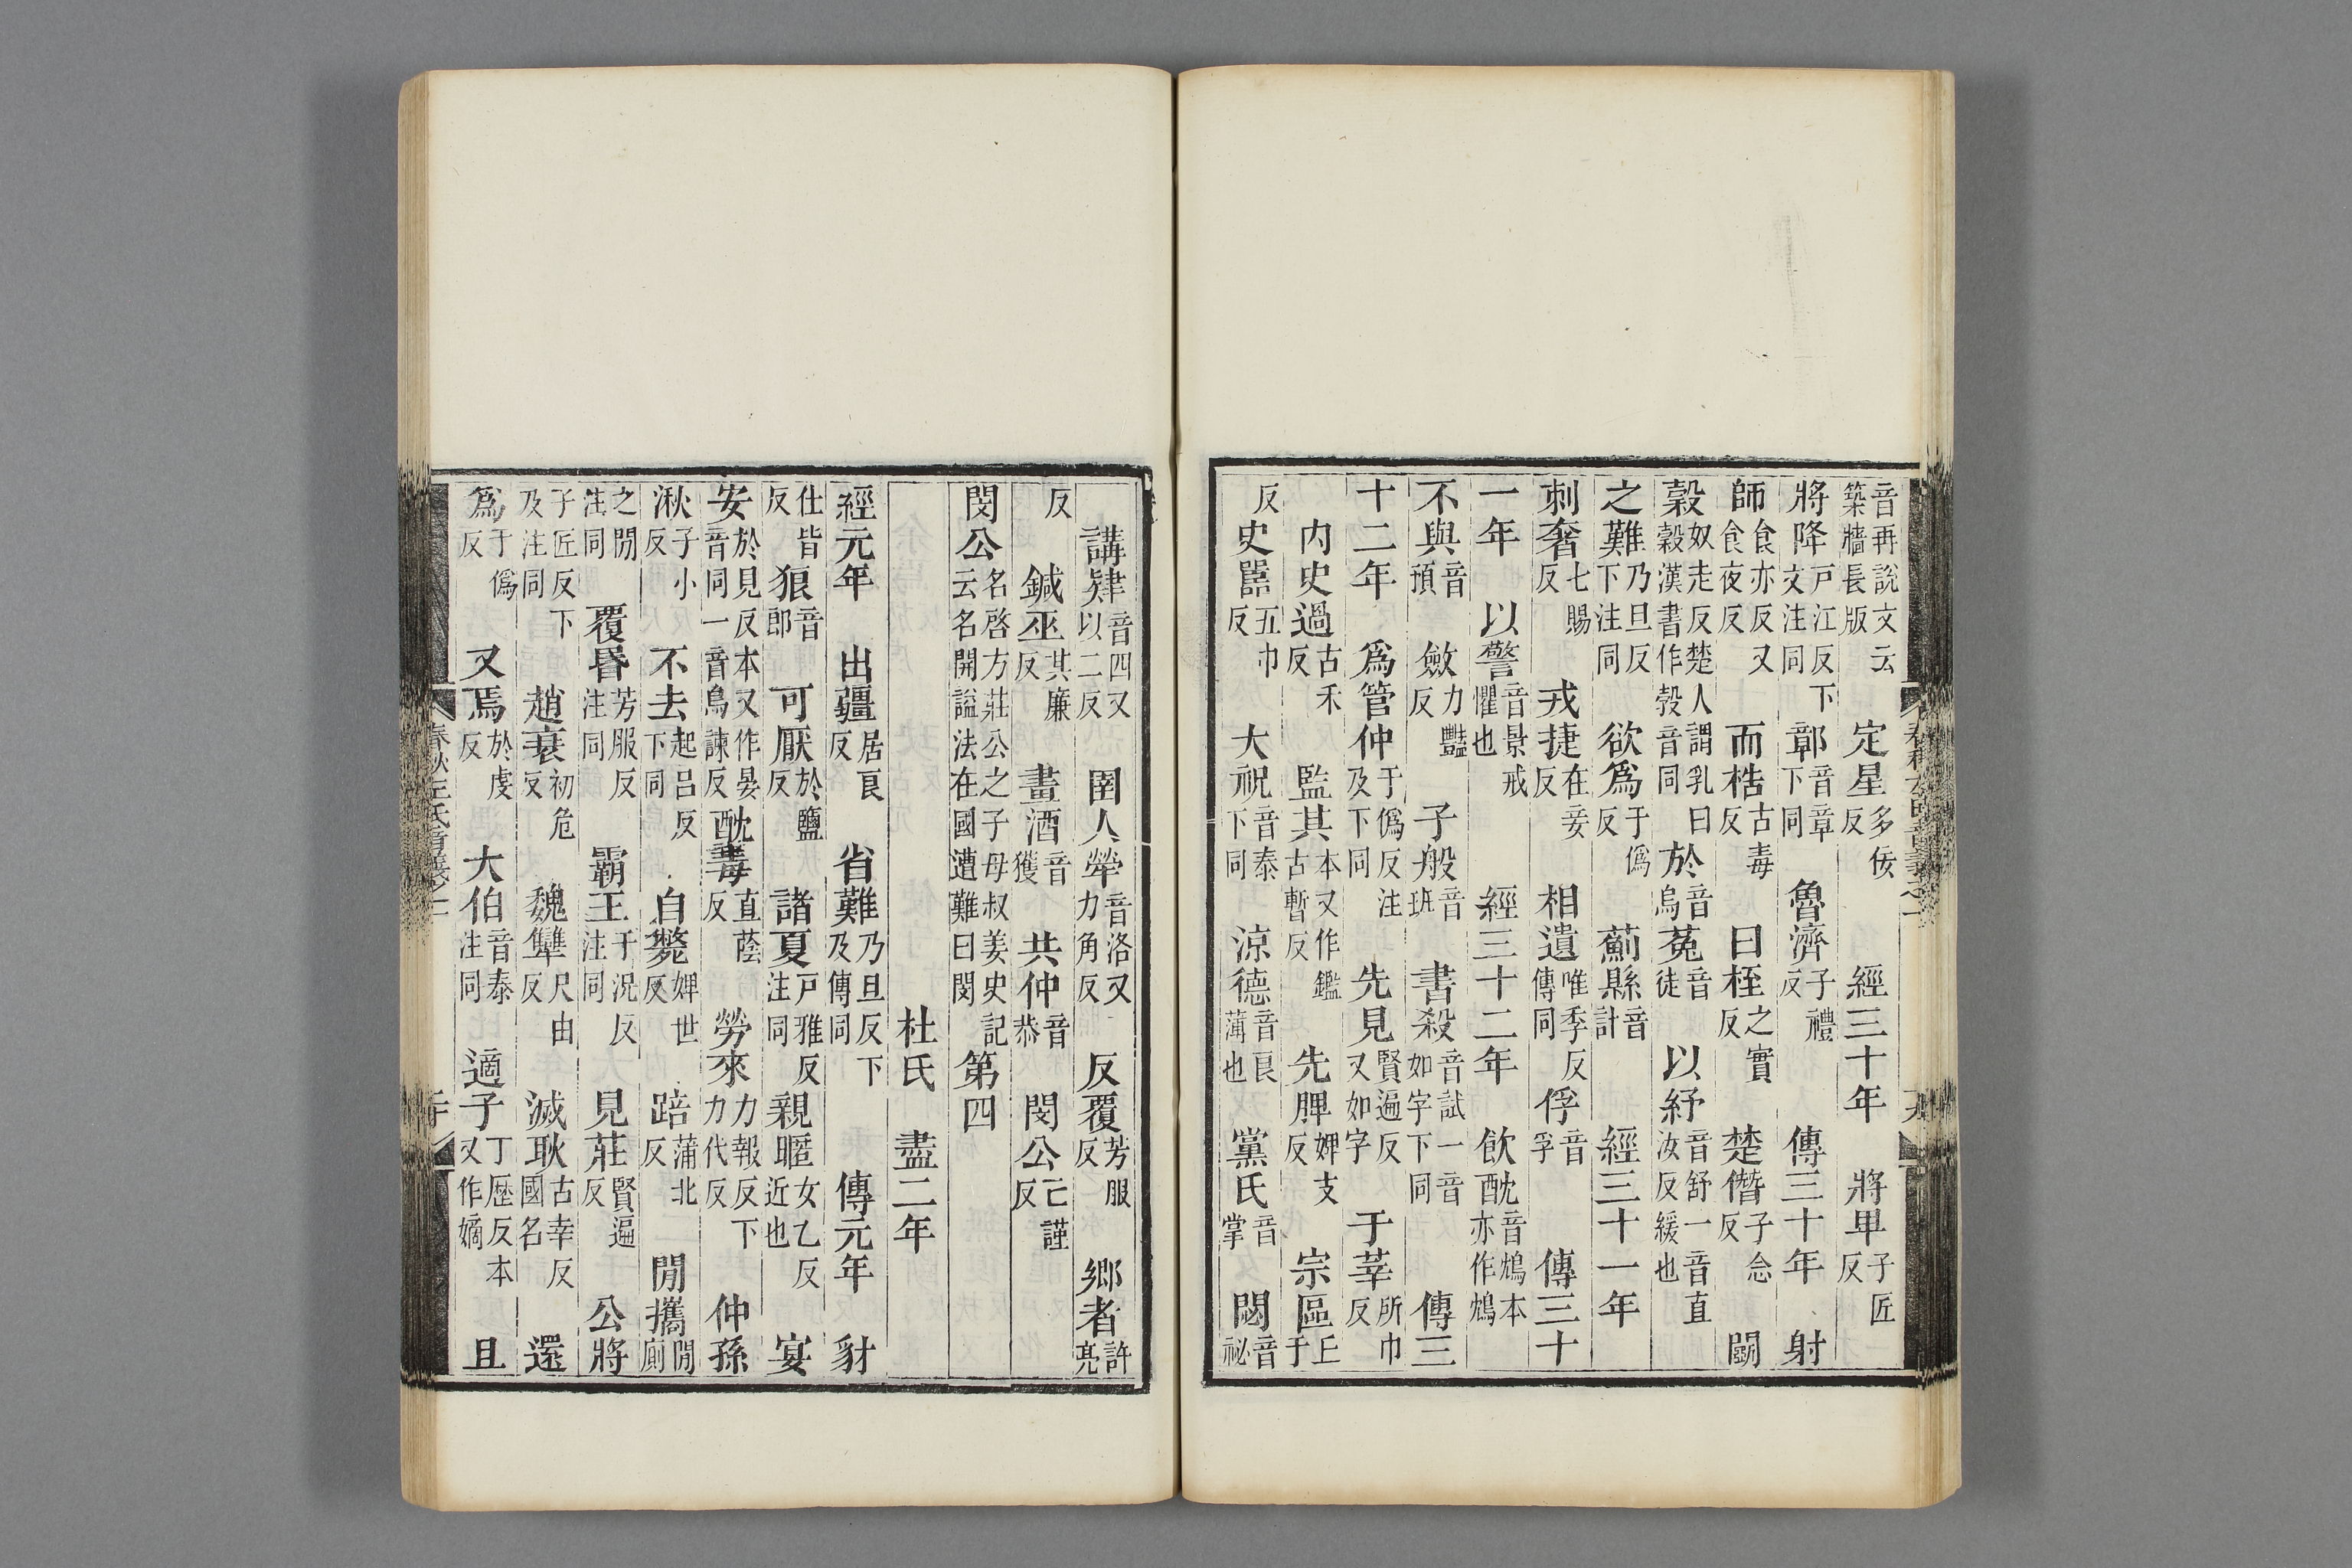 音再說文云築牆長版 定星多佞反 經三十年 將卑子匠反
將降戶江反下文注同 鄣音章下同 魯濟子禮反 傳三十年 射
師食亦反又食夜反 而梏古毒反 曰桎之實反 楚僭子念反 鬭
穀奴走反楚人謂乳曰穀漢書作㝅音同 於音烏 菟音徒 以紓音舒一音直汝反緩也
之難乃旦反下注同 欲爲于僞反 薊縣音計 經三十一年
刺奢七賜反 戎捷在妾反 相遺唯季反傳同 俘音孚 傳三十
一年 以警音景戒懼也 經三十二年 飲酖音鴆本亦作鴆
不與音預 斂力豔反 子般音班 書殺音試一音如字下同 傳三
十二年 爲管仲于僞反注及下同 先見賢遍反又如字 于莘所巾反
內史過古禾反 監其本又作鑑古暫反 先脾婢支反 宗區丘于
反 史嚚五巾反 大祝音泰下同 涼德音良薄也 黨氏音掌 閟音祕
講肄音四又以二反 圉人犖音洛又力角反 反覆芳服反 鄉者許亮
反 鍼巫其廉反 畫酒音獲 共仲音恭 閔公亡謹反
閔公名啓方莊公之子母叔姜史記云名開謚法在國遭難曰閔 第四
杜氏 盡二年
經元年 出疆居良反 省難乃旦反下及傳同 傳元年 豺
仕皆反 狼音郎 可厭於鹽反 諸夏戶雅反注同 親暱女乙反近也 宴
安於見反本又作晏音同一音烏諫反 酖毒直蔭反 勞來力報反下力代反 仲孫
湫子小反 不去起呂反下同 自斃婢世反 踣蒲北反 閒攜閒廁
之閒注同 覆昬芳服反注同 霸王于況反注同 見莊賢遍反 公將
子匠反下及注同 趙衰初危反 魏犨尺由反 滅耿古幸反國名 還
爲于僞反 又焉於虔反 大伯音泰注同 適子丁歷反本又作嫡 且